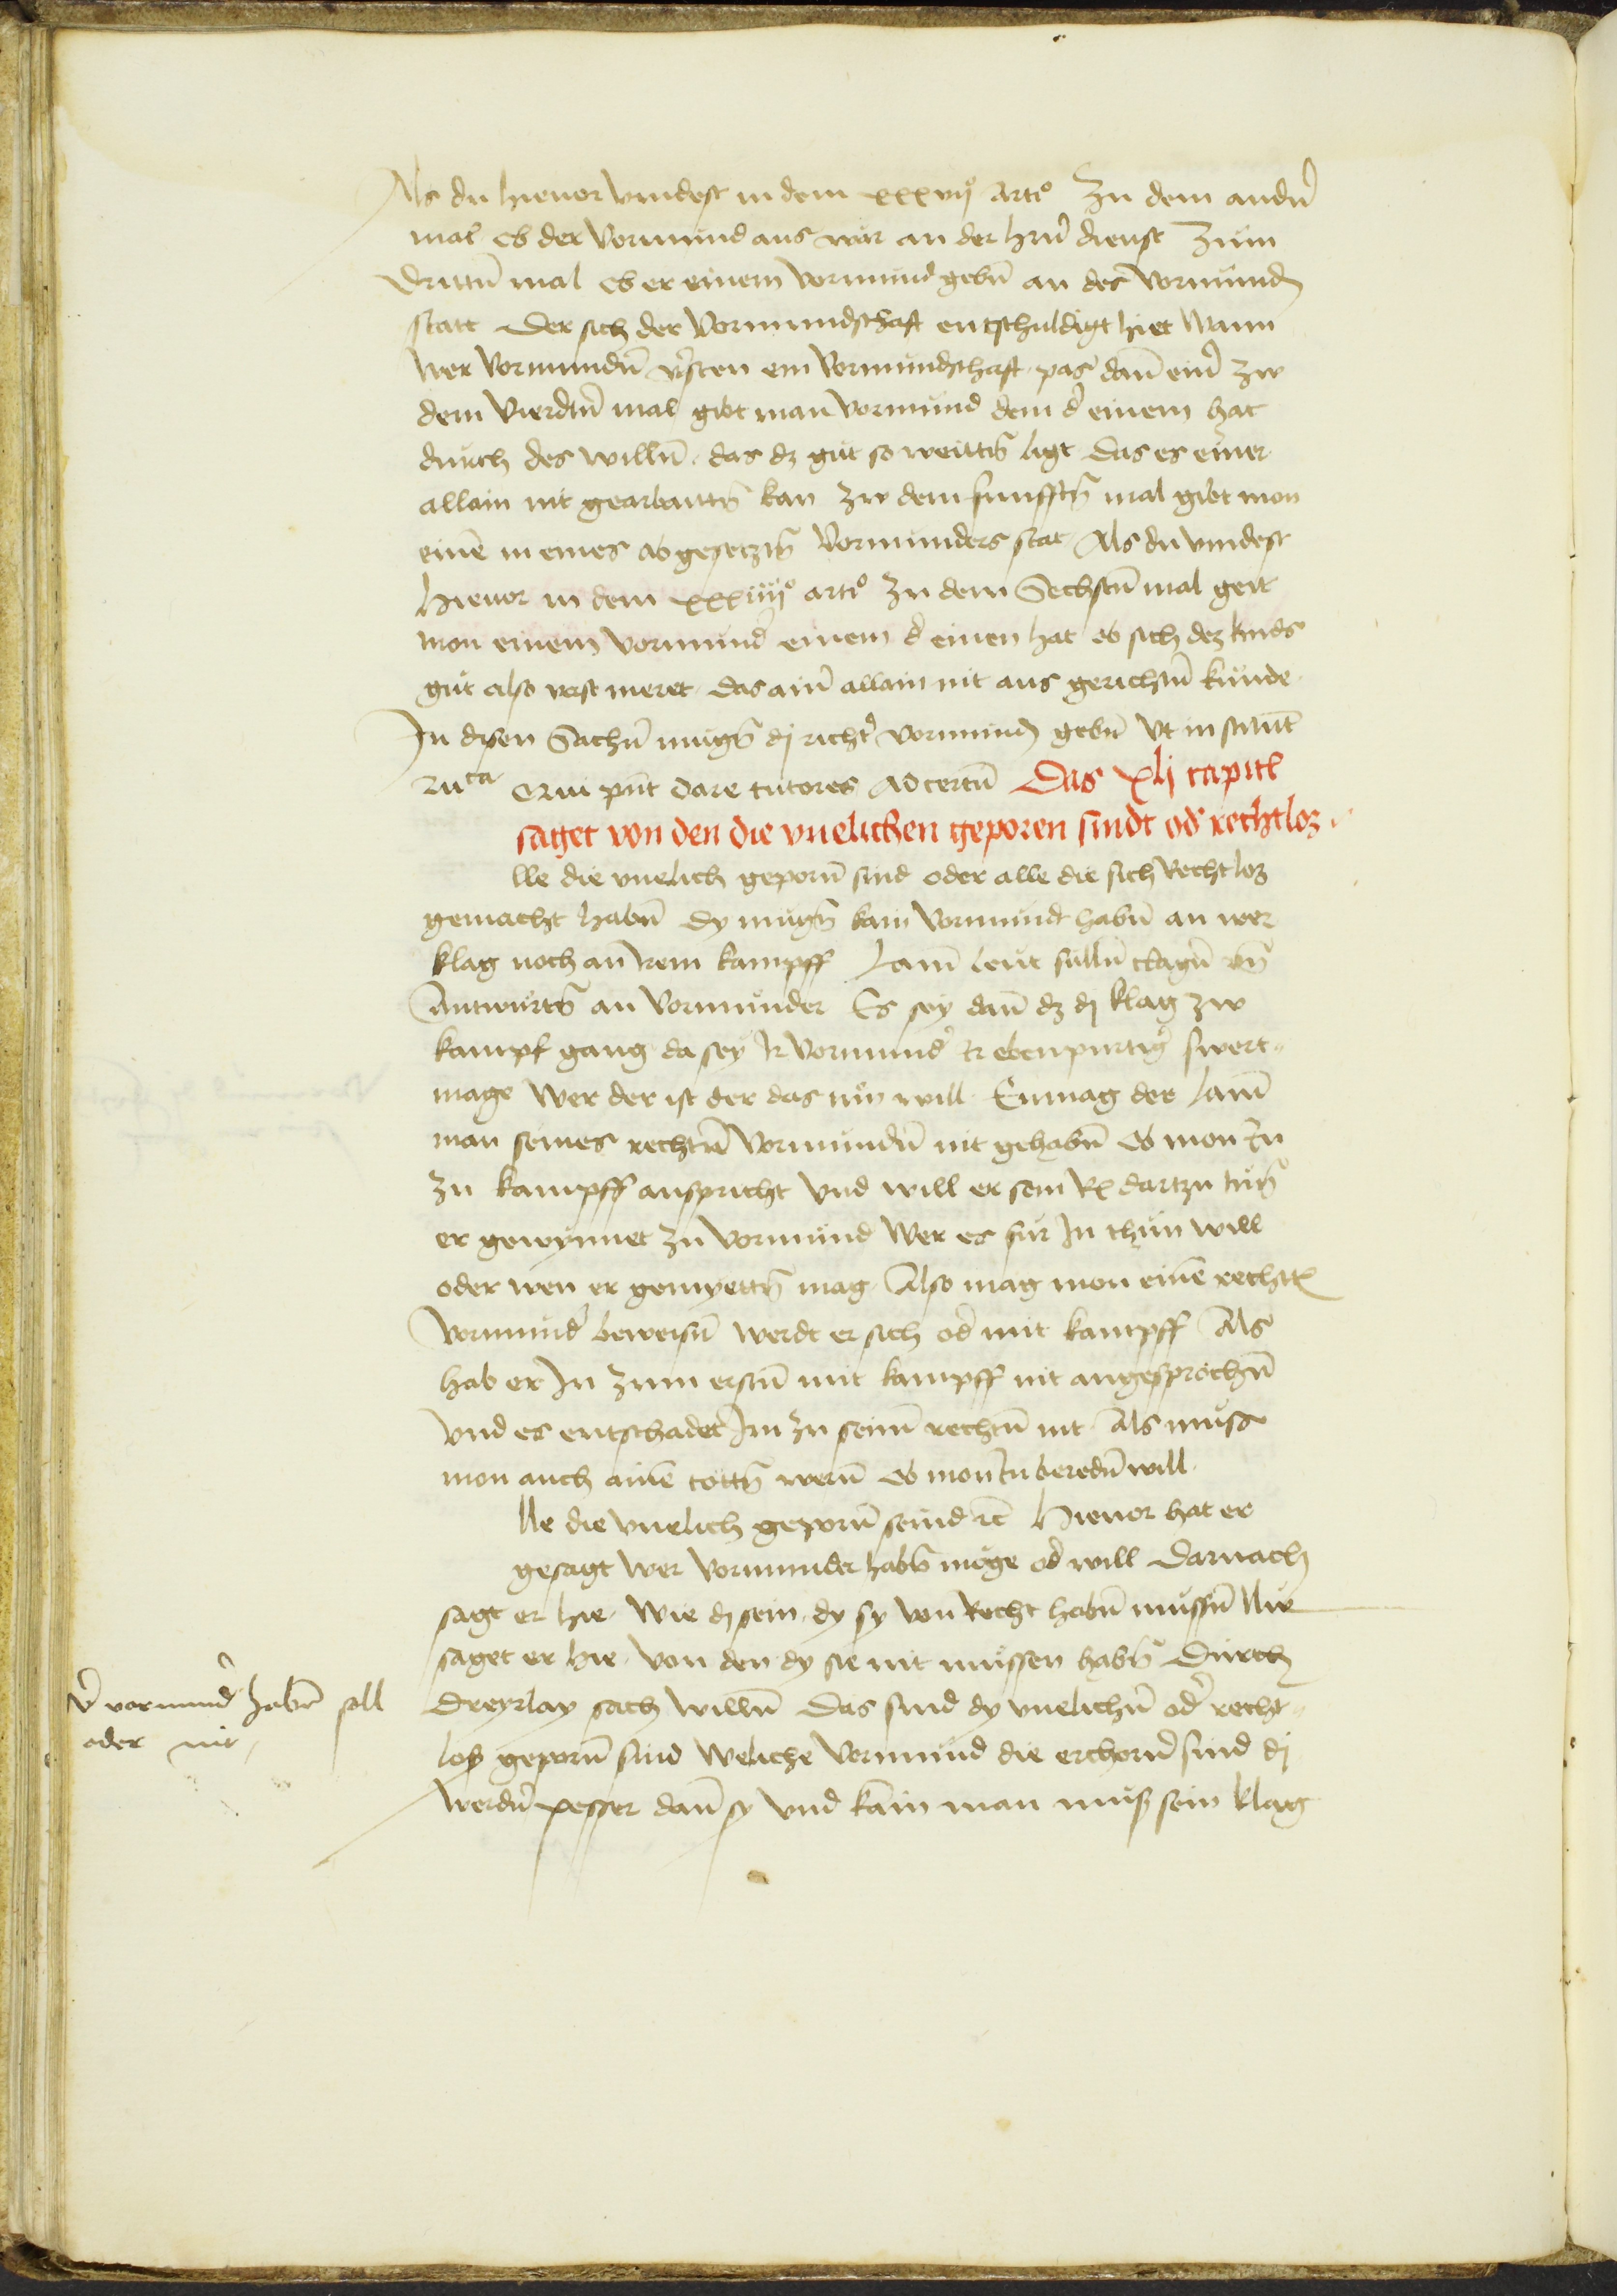 Als du hieuor vindest in dem xxxvijº artiº Zu dem andrñ
mal ob der Vormund aus wär an der hrñ dienst Zum
Drittñ mal ob er einem vormund gebñ an des vormundʒ
statt Der sich der Vormundschaft entschuldigt hiet Wann
wer Vormundñ v̾sten ein Vormundschaft pas dañ eiñ zw
dem Vierdtñ mal gibt man Vormund dem d̾ einem hat
durch des willñ das dʒ gut so weittñ ligt das es einer
allain nit gearbaittñ kan zw dem funfftñ mal gibt mon
einē in eines abgesetztñ Vormunders stat Als du vindest
hieuor in dem xxxiiijº artiº zu dem Sechstñ mal geit
mon einem vormund̾ einem d̾ einen hat ob sich dez kinds
gut also vast meret das aiñ allain nit aus gerichtñ kunde
In disen Sachñ mugñ dj richt̾ vormundʒ gebñ Vt in stitut̄
Zuca Qui pn̄t dare tutores ad certū Das xlj capitl
saget von den die vnelichen geporen sindt od̾ rechtloz
lle die vnelich geporñ sind oder alle die sich Rechtloz
gemacht habñ dy mugñ kain Vormund habñ an irer
klag noch an irem kampff Lam̄ leut sullñ clagñ vñ
Antwurtñ an Vormunder Es sey dañ dʒ dj klag zw
kampf gang da sey Ir vormund̾ Ir ebenpurtig̾ swert
mage Wer der ist der das tun will Enmag der Lam̄
man seines rechtñ Vormundñ nit gehabñ ob mon In
zu kampff anspricht Vnd will er sein Rʒ dartzu tuñ
er gewynnet zu vormund Wer es fur In thun will
oder wen er gemyettñ mag Also mag mon einē rechtʒ
Vormund̾ beweisñ werdt er sich od̾ mit kampff Als
hab er In zum erstñ mit kampff nit angesprochñ
vnd es entschadet Im zu seinñ rechtñ nit Als muss
mon auch ainē tottñ werñ ob mon In beredñ will
lle die vnelich geporñ seind ⁊c̄ Hieuor hat er
gesagt wer Vormunder habñ moge od̾ will Darnach
sagt er hie Wie dj sein dy sy von Recht habñ mussñ Nw
saget er hie von den dy sie nit mussen habñ Durch
Dreyrlay sach willñ Das sind dy vnelichñ od̾ recht
los geporñ sind Weliche Vormund die erchorñ sind dj
werdñ pesser dañ sy vnd kain man muss sein klag
W̾ vormund̾ habñ soll
oder nit